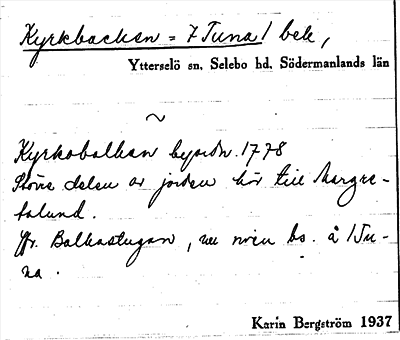 Kyrkbacken = 7 Tuna / beb,
Ytterselö sn, Selebo hd, Södermanlands län
~
Kyrkobalkan byordn. 1778
Större delen av jorden hör till Margre-
talund.
Jfr. Balkastugan, nu riven bs. å /Tu-
na.
Karin Bergström 1937